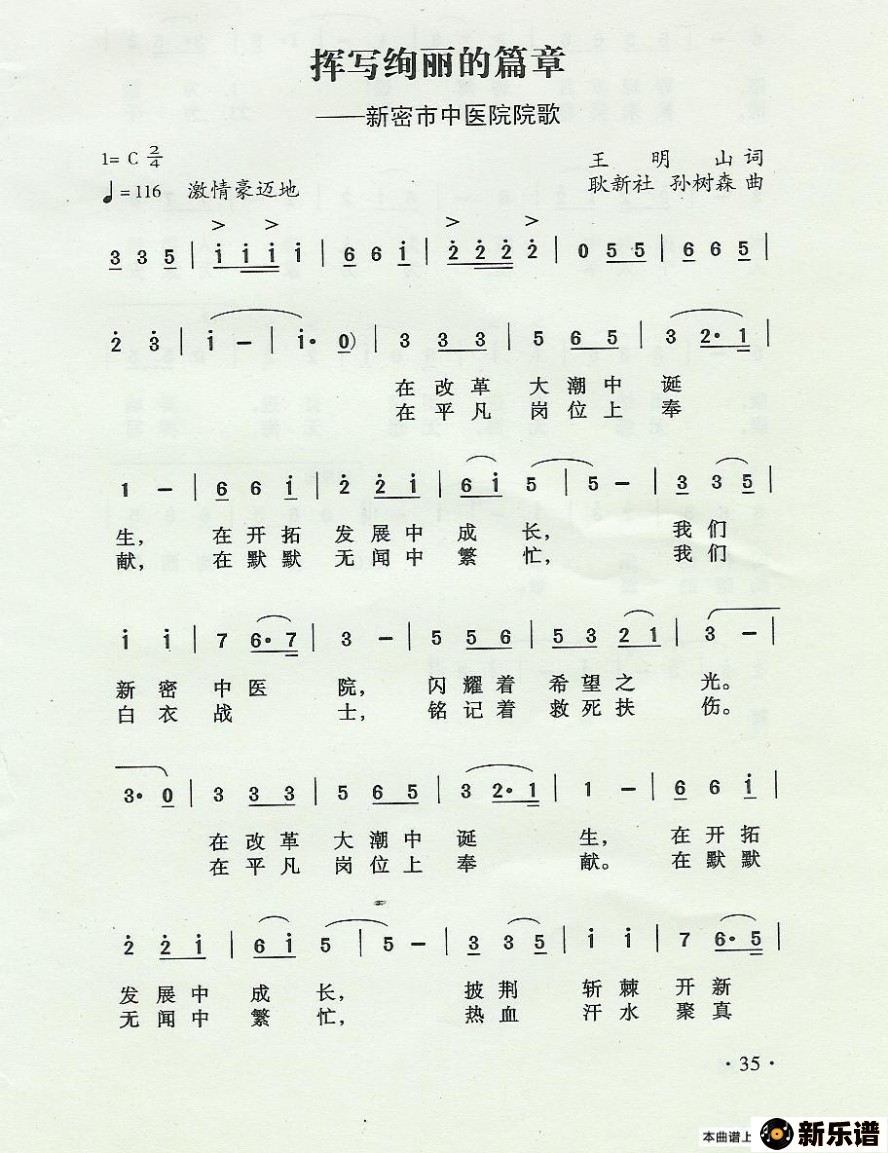 挥写绚丽的篇章
——新密市中医院院歌
1= C 2/4
王 明 山 词
♩=116 激情豪迈地
耿新社 孙树森 曲
3 3 5 | i i i i | 6 6 i | 2 2 2 2 | 0 5 5 | 6 6 5 |
2 3 | i - | i· 0) | 3 3 3 | 5 6 5 | 3 2· 1 |
在 改 革 大 潮 中 诞
在 平 凡 岗 位 上 奉
1 - | 6 6 i | 2 2 i | 6 i 5 | 5 - | 3 3 5 |
生, 在 开 拓 发 展 中 成 长, 我 们
献, 在 默 默 无 闻 中 繁 忙, 我 们
i i | 7 6· 7 | 3 - | 5 5 6 | 5 3 2 1 | 3 - |
新 密 中 医 院, 闪 耀 着 希 望 之 光。
白 衣 战 士, 铭 记 着 救 死 扶 伤。
3· 0 | 3 3 3 | 5 6 5 | 3 2· 1 | 1 - | 6 6 i |
在 改 革 大 潮 中 诞 生, 在 开 拓
在 平 凡 岗 位 上 奉 献。 在 默 默
2 2 i | 6 i 5 | 5 - | 3 3 5 | i i | 7 6· 5 |
发 展 中 成 长, 披 荆 斩 棘 开 新
无 闻 中 繁 忙, 热 血 汗 水 聚 真
· 35 ·
本曲谱上
新乐谱